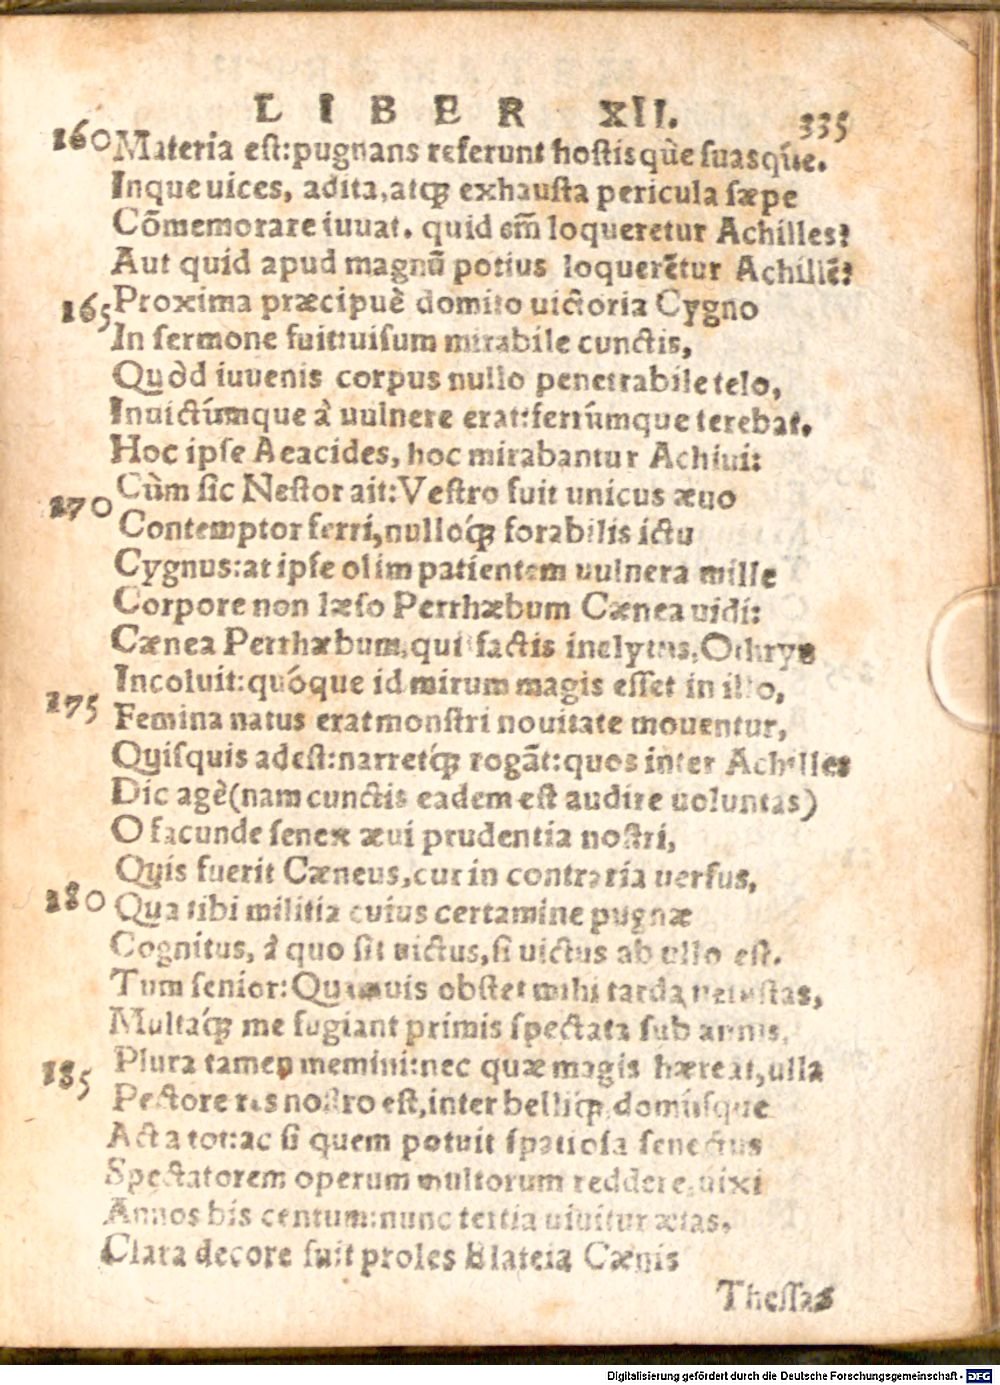 LIBER XII. 335
160 Materia est:pugnans referunt hostisque suasque.
Inque uices, adita, atqȝ exhausta pericula sæpe
Cōmemorare iuuat. quid em̄ loqueretur Achilles?
Aut quid apud magnū potius loquerētur Achillē?
165 Proxima præcipuè domito uictoria Cygno
In sermone fuit:uisum mirabile cunctis,
Quòd iuuenis corpus nullo penetrabile telo,
Inuictúmque à uulnere erat:ferrúmque terebat.
Hoc ipse Aeacides, hoc mirabantur Achiui:
Cùm sic Nestor ait:Vestro fuit unicus æuo
270 Contemptor ferri,nulloq́ȝ forabilis ictu
Cygnus:at ipse olim patientem uulnera mille
Corpore non læso Perrhæbum Cænea uidi:
Cænea Perrhæbum,qui factis inclytus,Othryn
Incoluit:quóque id mirum magis esset in illo,
275 Femina natus erat monstri nouitate mouentur,
Quisquis adest:narretq́ȝ rogāt:quos inter Achilles
Dic agè(nam cunctis eadem est audire uoluntas)
O facunde senex æui prudentia nostri,
Quis fuerit Cæneus,cur in contraria uersus,
280 Qua tibi militia cuius certamine pugnæ
Cognitus, à quo sit uictus,si uictus ab ullo est.
Tum senior:Quamuis obstet mihi tarda uetustas,
Multaq́ȝ me fugiant primis spectata sub annis,
Plura tamen memini:nec quæ magis hæreat,ulla
185 Pectore res nostro est,inter belliqȝ domúsque
Acta tot:ac si quem potuit spatiosa senectus
Spectatorem operum multorum reddere,uixi
Annos bis centum:nunc tertia uiuitur ætas,
Clara decore fuit proles Elateia Cænis
Thessas
Digitalisierung gefördert durch die Deutsche Forschungsgemeinschaft - DFG